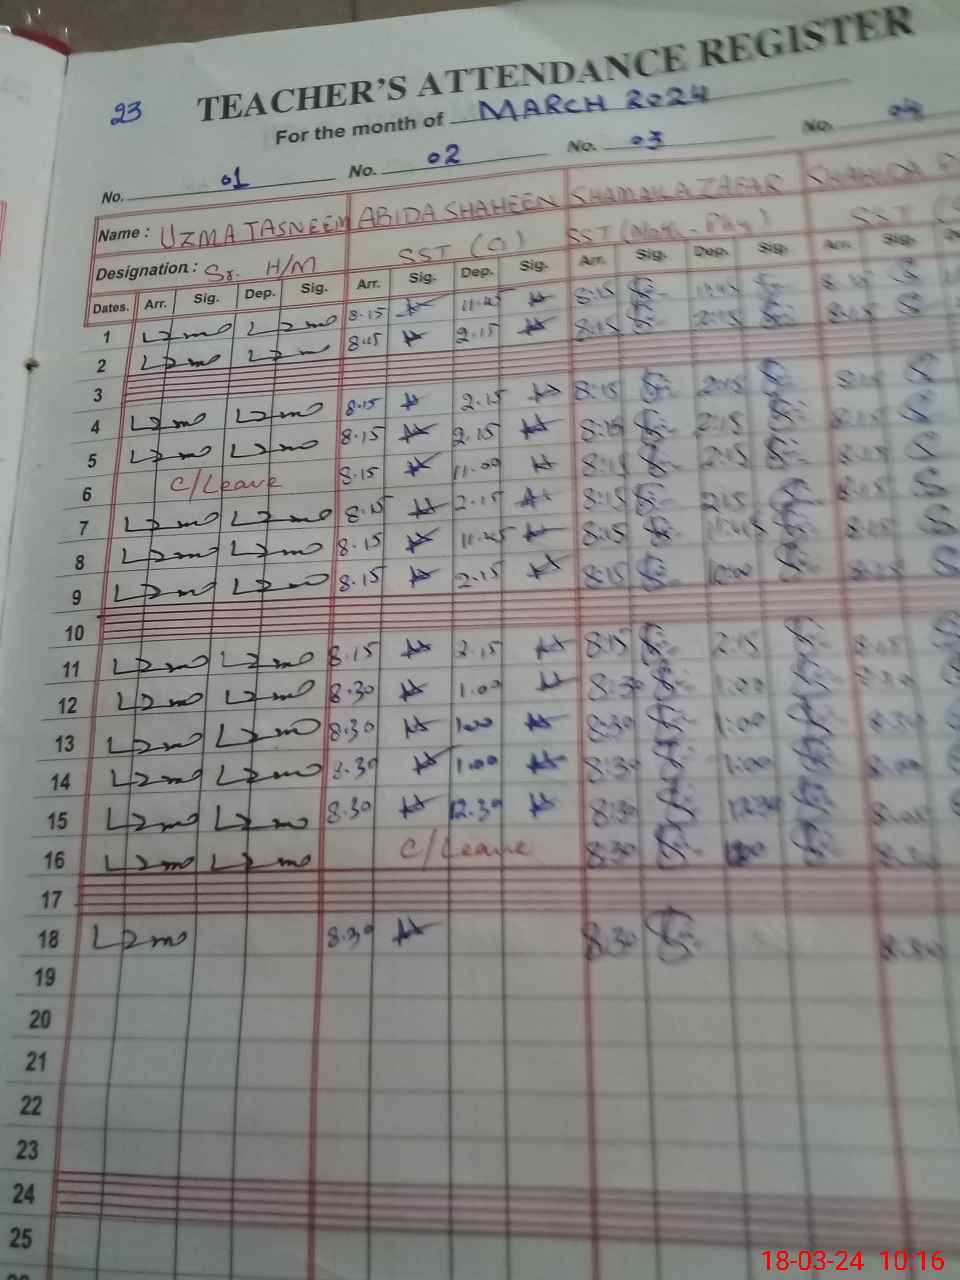 23
TEACHER'S ATTENDANCE REGISTER
For the month of MARCH 2024
No. 01 No. 02 No. 03 No. 04
Name: UZMA TASNEEM ABIDA SHAHEEN SHAMAILA ZAFAR SHAHIDA
Designation: Sr. H/M SST (G) SST (Math-Phy) SST
Dates. Arr. Sig. Dep. Sig. Arr. Sig. Dep. Sig. Arr. Sig. Dep. Sig. Arr. Sig.
1 8.15 11.45 8:15 11:45
2 8.15 2.15 8:15 2:15 8:15
3
4 8.15 2.15 8:15 2:15 8:15
5 8.15 2.15 8:15 2:15 8:15
6 C/Leave 8.15 11.00 8:15 2:15 8:15
7 8.15 2.15 8:15 2:15 8:15
8 8.15 11.45 8:15 11:45 8:15
9 8.15 2.15 8:15 8:15
10
11 8.15 2.15 8:15 2:15 8:15
12 8.30 1.00 8:30 1:00 8:30
13 8.30 1.00 8:30 1:00 8:30
14 8.30 1.00 8:30 1:00
15 8.30 12.30 8:30 12:30
16 C/Leave 8:30
17
18 8.30 8:30 8:30
19
20
21
22
23
24
25
18-03-24 10:16